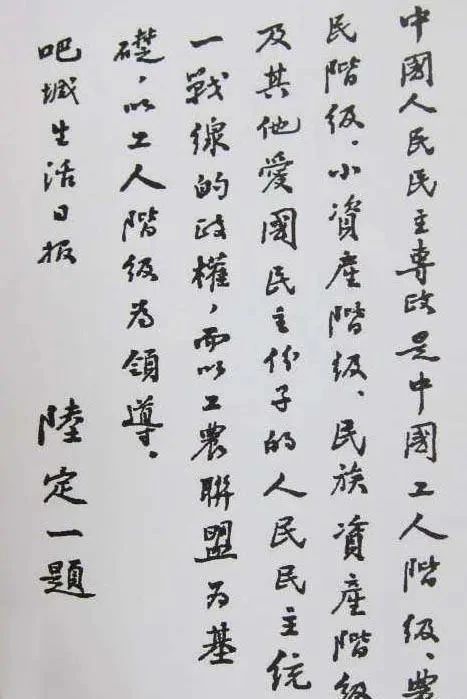 中國人民民主專政是中國工人階级、農
民階级、小資產階级、民族資產階级
及其他愛國民主份子的人民民主統
一戰線的政權，而以工農聯盟为基
礎，以工人階级为領導。
吧城生活日报 陸定一題